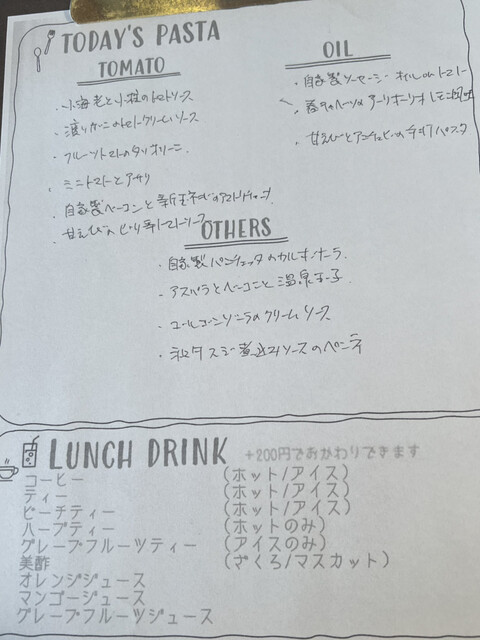 TODAY'S PASTA
TOMATO
・小海老と小柱のトマトソース
・渡りガニのトマトクリームソース
・フルーツトマトのタリオリーニ
・ミニトマトとアサリ
・自家製ベーコンと新玉ねぎのアマトリチャーナ
・甘えびの ピリ辛トマトソース
OIL
・自家製ソーセージ オイル or トマト
・春キャベツの アーリオーリオ
・甘えびとアンチョビの パスタ
OTHERS
・自家製パンチェッタのカルボナーラ
・アスパラとベーコンと温泉玉子
・ゴルゴンゾーラのクリームソース
・スジ煮込みソースのペンネ
LUNCH DRINK +200円でおかわりできます
コーヒー (ホット/アイス)
ティー (ホット/アイス)
ピーチティー (ホット/アイス)
ハーブティー (ホットのみ)
グレープフルーツティー (アイスのみ)
美酢 (ざくろ/マスカット)
オレンジジュース
マンゴージュース
グレープフルーツジュース